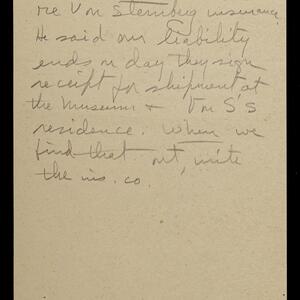 re Von Sternberg insurance
He said our liability
ends on day they sign
receipt for shipment at
the Museum + Von S's
residence. When we
find that out, write
the ins. co.